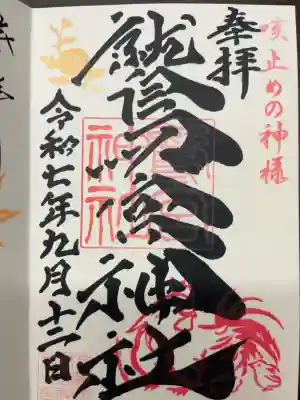 咳止めの神様
奉拝
鷲宮神社
令和七年九月十二日